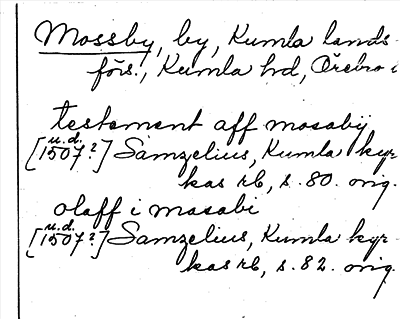 Mossby, by, Kumla lands
förs., Kumla hd, Örebro
testement aff mosaby
[u.d. 1507?] Samzelius, Kumla kyr
kas rb, s. 80. orig.
olaff i masabi
[u.d. 1507?] Samzelius, Kumla kyr
kas rb, s. 82. orig.